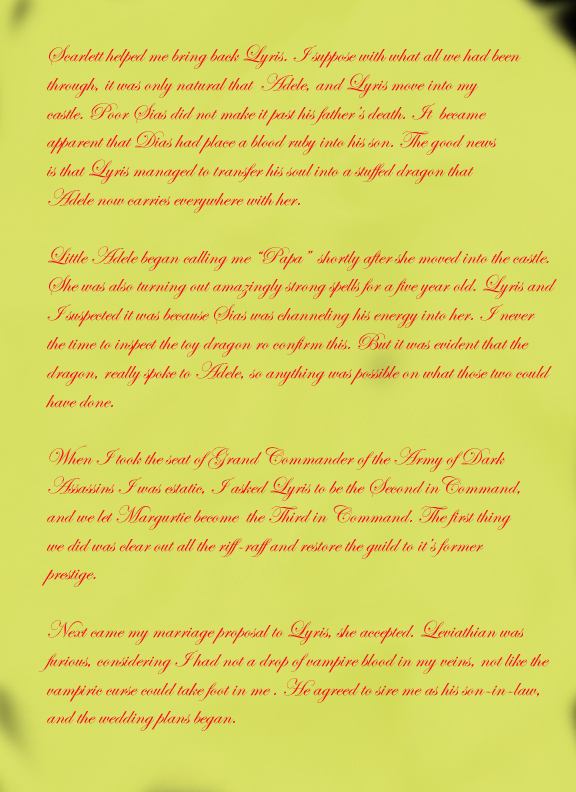 Scarlett helped me bring back Lyris. I suppose with what all we had been
through, it was only natural that Adele, and Lyris move into my
castle. Poor Sias did not make it past his father's death. It became
apparent that Dias had place a blood ruby into his son. The good news
is that Lyris managed to transfer his soul into a stuffed dragon that
Adele now carries everywhere with her.

Little Adele began calling me “Papa” shortly after she moved into the castle.
She was also turning out amazingly strong spells for a five year old. Lyris and
I suspected it was because Sias was channeling his energy into her. I never
the time to inspect the toy dragon ro confirm this. But it was evident that the
dragon, really spoke to Adele, so anything was possible on what those two could
have done.

When I took the seat of Grand Commander of the Army of Dark
Assassins I was estatic, I asked Lyris to be the Second in Command,
and we let Margurtie become the Third in Command. The first thing
we did was clear out all the riff-raff and restore the guild to it's former
prestige.

Next came my marriage proposal to Lyris, she accepted. Leviathian was
furious, considering I had not a drop of vampire blood in my veins, not like the
vampiric curse could take foot in me . He agreed to sire me as his son-in-law,
and the wedding plans began.